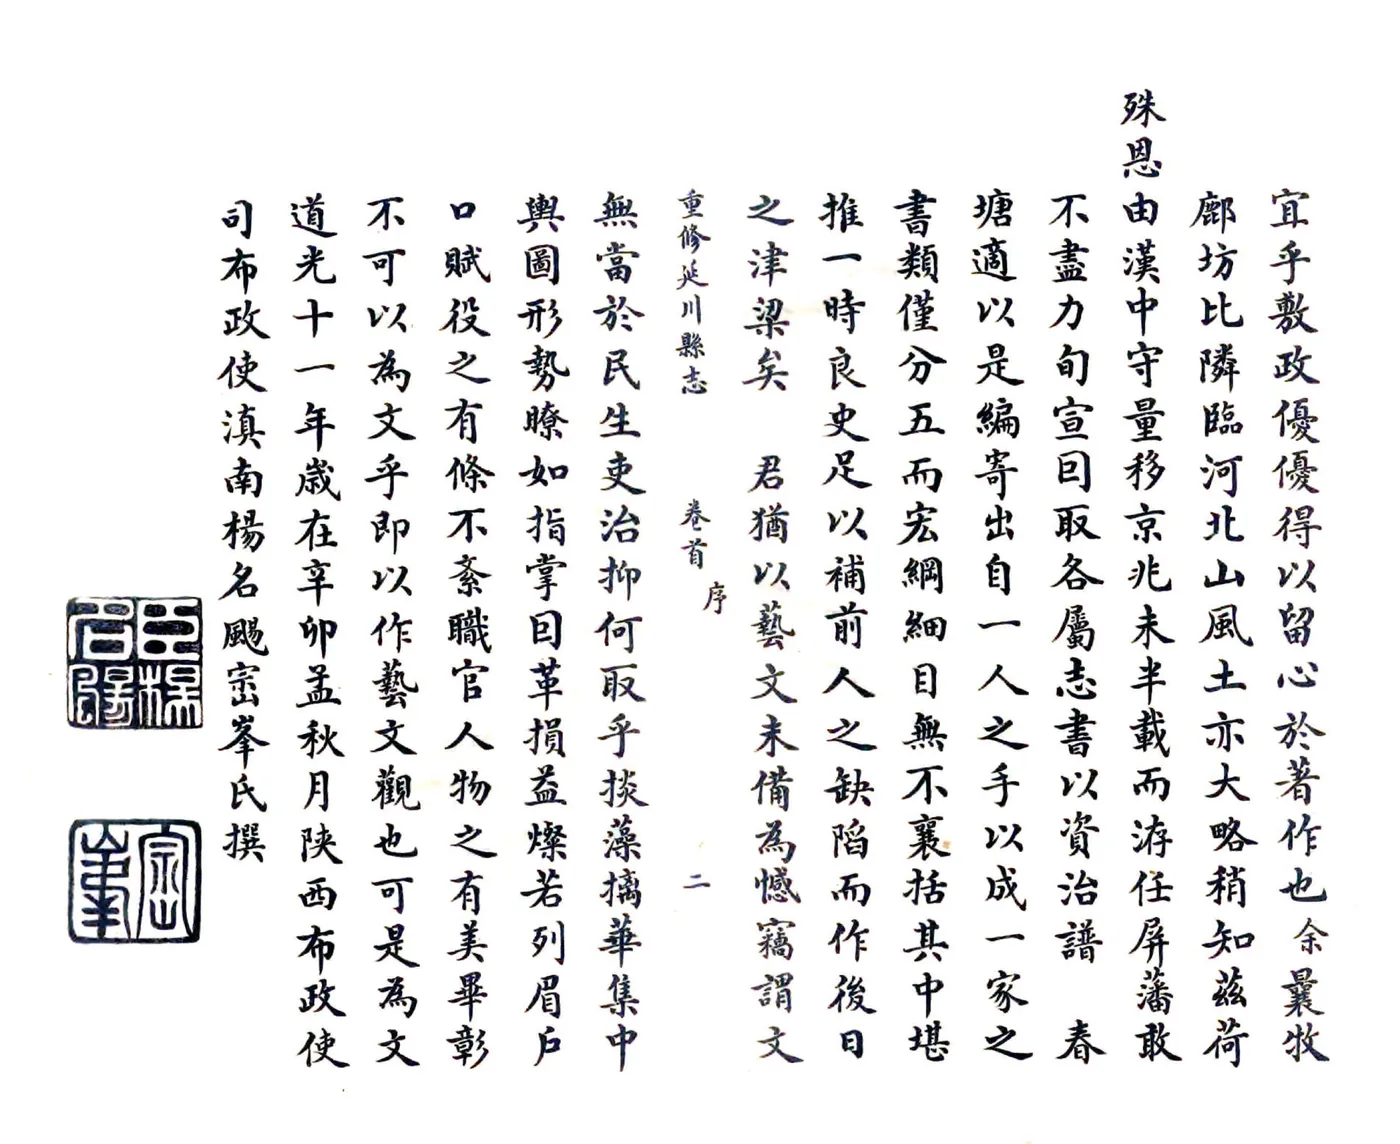 宜乎敷政優優得以留心於著作也余曩牧
鄜坊比隣臨河北山風土亦大略稍知茲荷
殊恩由漢中守量移京兆未半載而洊任屏藩敢
不盡力旬宣囙取各屬志書以資治譜 春
塘適以是編寄出自一人之手以成一家之
書類僅分五而宏綱細目無不襄括其中堪
推一時良史足以補前人之缺陷而作後日
之津梁矣 君猶以藝文未備為憾竊謂文
重修延川縣志 卷首 序 二
無當於民生吏治抑何取乎掞藻摛華集中
輿圖形勢瞭如指掌囙革損益燦若列眉戶
口賦役之有條不紊職官人物之有美畢彰
不可以為文乎即以作藝文觀也可是為文
道光十一年歲在辛卯孟秋月陝西布政使
司布政使滇南楊名颺崈峯氏撰